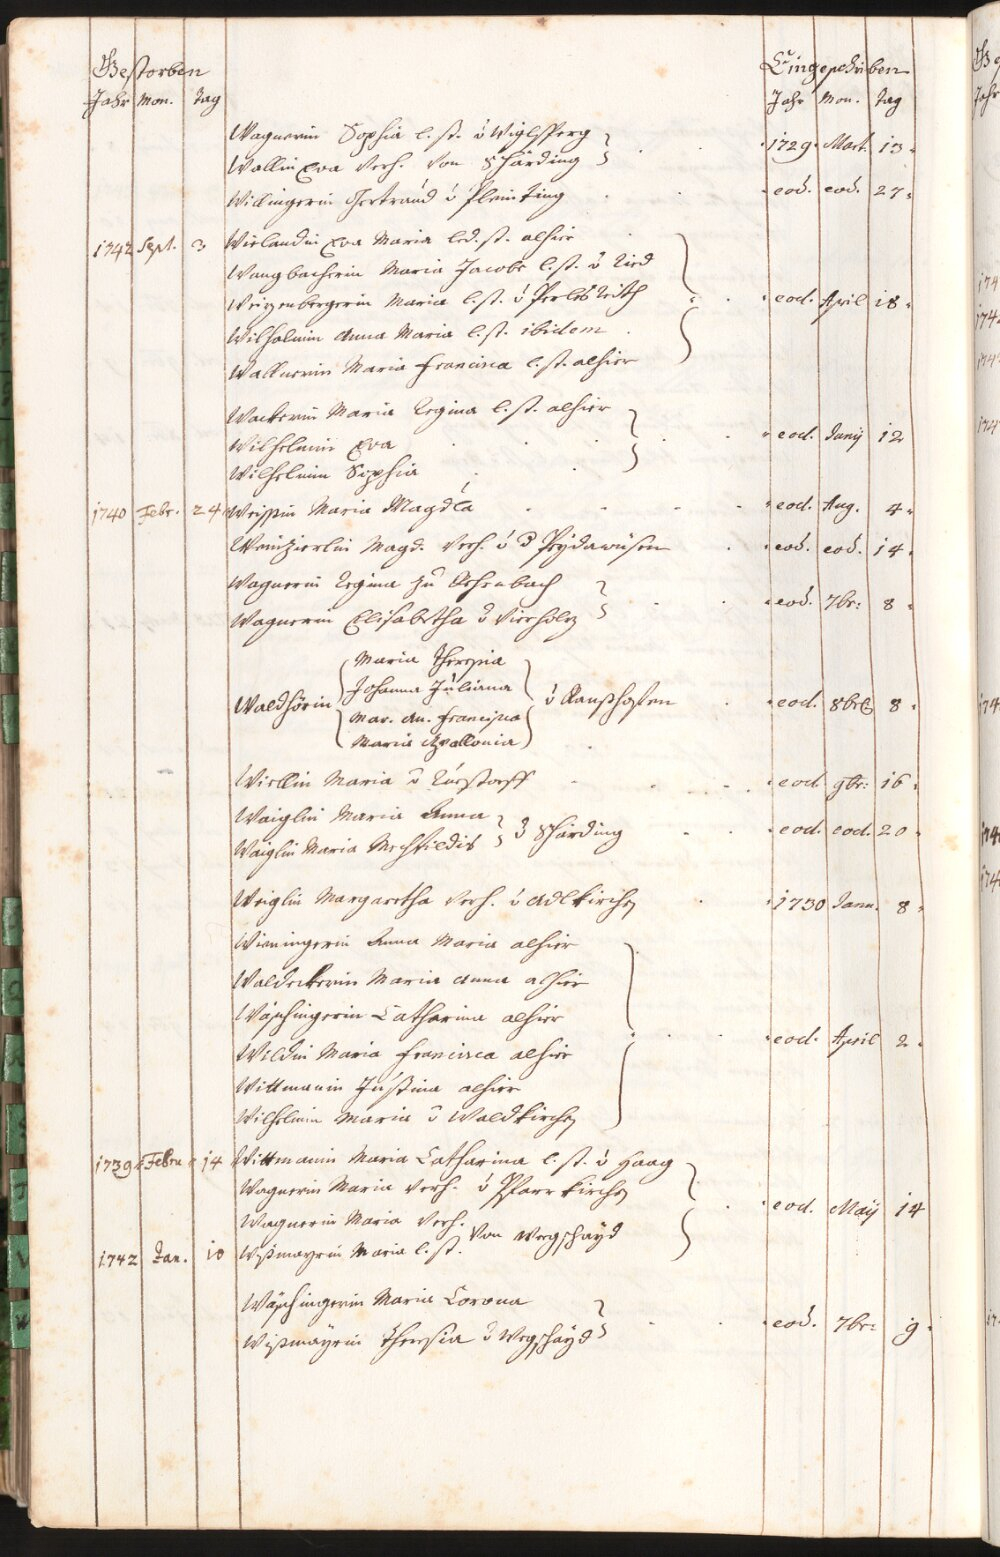 Gestorben Eingeschriben
Jahr Mon. Tag Jahr Mon. Tag
Wagnerin Sophia l. st. v
Wallin Eva verh. von Schärding 1729. Mart. 13.
Willingerin Gertraud v Pleinting eod. eod. 27.
1742 Sept. 3 Wielandin Eva Maria led. st. alhier
Wangbacherin Maria Jacobe l. st. v Ried
Weixenbergerin Maria l. st. v eod. April 18.
Wilhelmin Anna Maria l. st. ibidem
Wallnerin Maria Francisca l. st. alhier
Wackerin Maria Regina l. st. alhier
Wilhelmin Eva eod. Junij 12
Wilhelmin Sophia
1740 Febr. 24 Weissin Maria Magdla eod. Aug. 4.
Weinzierlin Magd. verh. v eod. eod. 14.
Wagnerin Regina zu
Wagnerin Elisabetha v Vierholz eod. 7br: 8.
Maria Theresia
Johanna Juliana
Waldhörin v Ranshofen eod. 8bris 8.
Mar. An. Francisca
Maria Apallonia
Wirllin Maria v eod. 9br: 16.
Waiglin Maria Anna
Waiglin Maria Mechtildis v Schärding eod. eod. 20.
Weiglin Margaretha verh. v Adlkirchen 1730 Janu. 8.
Wieningerin Anna Maria alhier
Waldeckerin Maria Anna alhier
Wäschingerin Catharina alhier
Wildin Maria Francisca alhier eod. April 2.
Wittmanin Justina alhier
Wilhelmin Maria v Waldkirchen
1739 Febru 14 Wittmanin Maria Catharina l. st. v Haag
Wagnerin Maria verh. v Pfarrkirchen eod. Maij 14
Wagnerin Maria verh. von Wegschayd
1742 Jan. 10 Wißmayrin Maria l. st.
Wäschingerin Maria Corona
Wißmayrin Theresia v Wegschayd eod. 7br: 9.